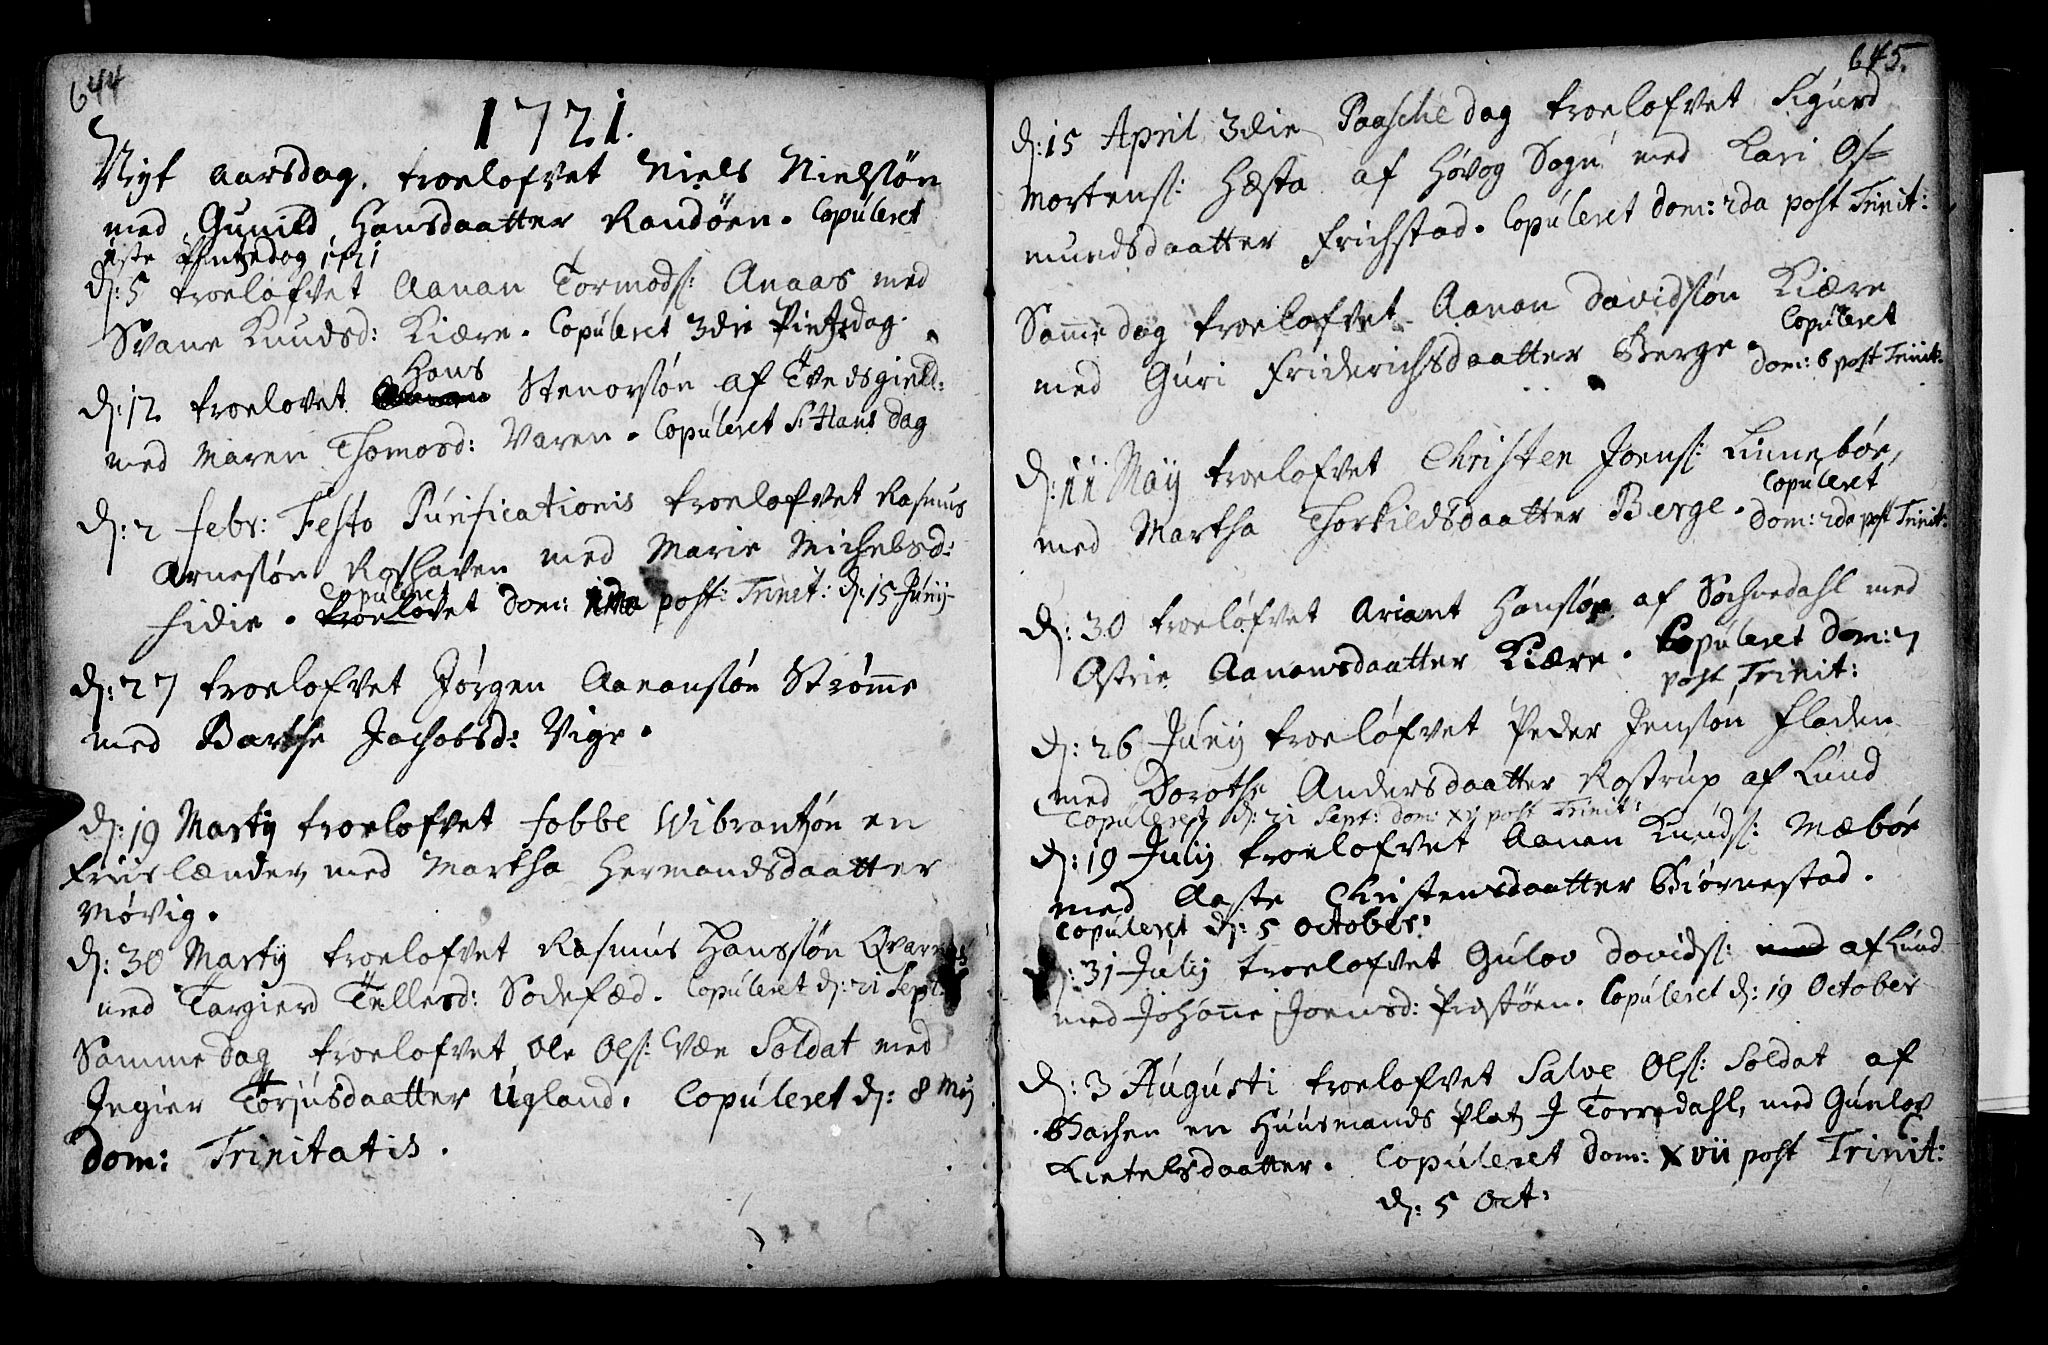 644
1721.
Nyt aarsdag, troelofvet Niels Nielsøn
med Gunild Hansdaatter Randøen. Copuleret
1ste Pintzedag 1721
d: 5 troelofvet Aanan Tormods: Anaas med
Svane Knudsd: Kiære. Copuleret 3die Pintzdag.
Hans
d: 12 troelovet Stenorsøn af Tvedsgield:
med Maren Thomasd: Varen. Copuleret St Hans Dag
d: 2 Febr: Festo Purificationis troelofvet Rasmus
Arnesøn Roshaven med Marie Michelsd:
Copuleret
Fidie. troelovet Dom: 1ma post: Trinit: d: 15 Junij
d: 27 troelofvet Jørgen Aanansøn Strømme
med Barthe Jachobsd: Vige.
d: 19 Martij troelofvet Fobbe Wibrantzøn en
Friislænder, med Martha Hermandsdaatter
Møvig.
d: 30 Martij troelofvet Rasmus Hanssøn
med Targierd Tellesd: Sodefæd. Copuleret d: 21 Sept:
Samme dag troelofvet Ole Ols: Væn Soldat med
Ingier Torjusdaatter Ugland. Copuleret d: 8
Dom: Trinitatis.
645.
d: 15 April 3die Paaschedag troelofvet Sigurd
Mortens: Hæsta af Høvog Sogn med Kari Os=
mundsdaatter Frichstad. Copuleret Dom: 2da post Trinit:
Samme dag troelofvet Aanan Davidsøn Kiære
Copuleret
med Guri Friderichsdaatter Berge. Dom: 6 post Trinit:
d: 11 Maij troelofvet Christen Joens: Linnebøe,
Copuleret
med Martha Thorkildsdaatter Berge. Dom: 2da post Trinit:
d: 30 troelofvet Ariant Hansløn af Sochnedahl med
Ostrie Aanonsdaatter Kiære. Copuleret Dom: 7
post Trinit:
d: 26 Junij troelofvet Peder Jensøn Fladen
med Dorothe Andersdaatter Rostrup af Lund
Copuleret d: 21 Sept: dom: XV post Trinit:
d: 19 Julij troelofvet Aanan Knuds: Mæbøe
med Aaste Christensdaatter Biørnestad.
Copuleret d: 5 October.
d: 31 Julij troelofvet Gulov Davids: med af Lund
med Johanne Joensd: Prestøen. Copuleret d: 19 October
d: 3 Augusti troelofvet Salve Ols: Soldat af
Bachen en Huusmands Platz I Torredahl, med Gunlov
Kietelsdaatter. Copuleret Dom: XVII post Trinit:
d: 5 Oct: